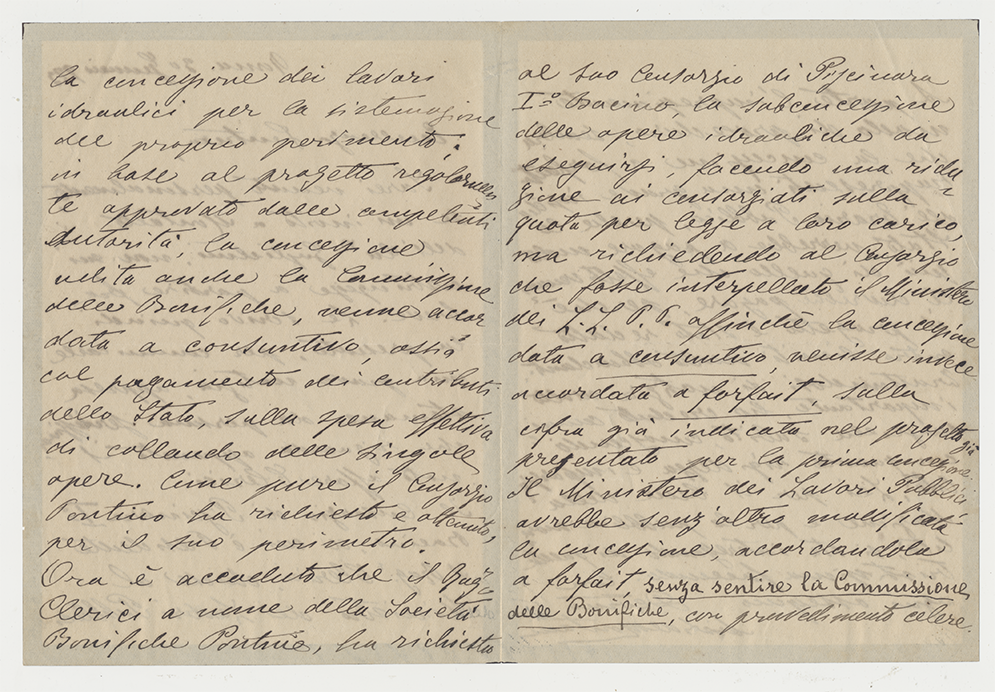 la concessione dei lavori
idraulici per la sistemazione
del proprio perimento,
in base al progetto regolarmen-
te approvato dalle competenti
Autorità, la concessione
udita anche la Commissione
delle Bonifiche, venne accor
data a consuntivo, ossia
col pagamento dei contributi
dello Stato, sulla spesa effettiva
di collaudo delle singole
opere. Come pure il Consorzio
Pontino ha richiesto e ottenuto,
per il suo perimetro.
Ora è accaduto che il
Clerici a nome della Società
Bonifiche Pontine, ha richiesto
al suo Consorzio di Piscinara
Iº Bacino, la subconcessione
delle opere idrauliche da
eseguirsi, facendo una ridu-
zione ai consorziati sulla
quota per legge a loro carico,
ma richiedendo al Consorzio
che fosse interpellato il Ministero
dei L. L. P. P. affinchè la concessione
data a consuntivo, venisse invece
accordata a forfait, sulla
cifra già indicata nel progetto già
presentato per la prima concessione.
Il Ministero dei Lavori Pubblici
avrebbe senz'altro modificata
la concessione, accordandola
a forfait, senza sentire la Commissione
delle Bonifiche, con provvedimento celere.